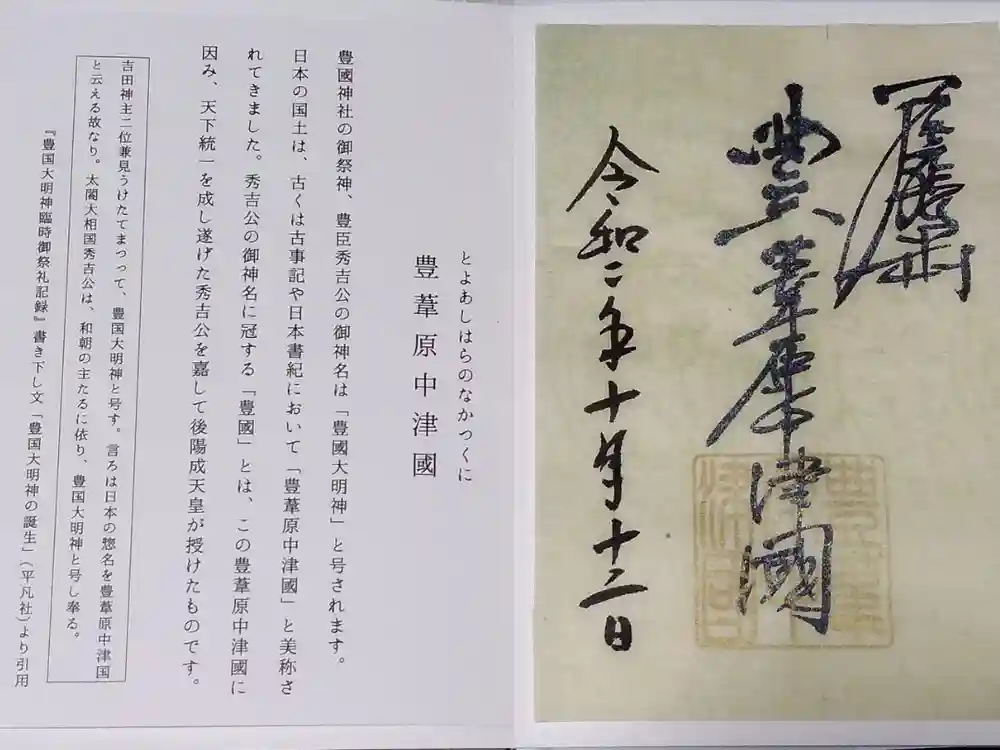 豊葦原中津國
令和二年十月十二日
とよあしはらのなかっくに
豊葦原中津國
豊國神社の御祭神、豊臣秀吉公の御神名は「豊國大明神」と号されます。
日本の国土は、古くは古事記や日本書紀において「豊葦原中津國」と美称さ
れてきました。秀吉公の御神名に冠する「豊國」とは、この豊葦原中津國に
因み、天下統一を成し遂げた秀吉公を嘉して後陽成天皇が授けたものです。
吉田神主二位兼見うけたてまつって、豊国大明神と号す。言ろは日本の惣名を豊葦原中津国
と云える故なり。太閤大相国秀吉公は、和朝の主たるに依り、豊国大明神と号し奉る。
『豊国大明神臨時御祭礼記録』書き下し文「豊国大明神の誕生」(平凡社)より引用